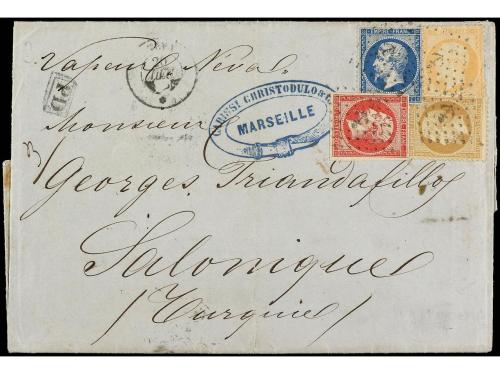 Vapeur Neva
PD
CHRISTODULO & C.
MARSEILLE
EMPIRE FRANC
Monsieur
Georges Triandafillos
Salonique
(Turquie)